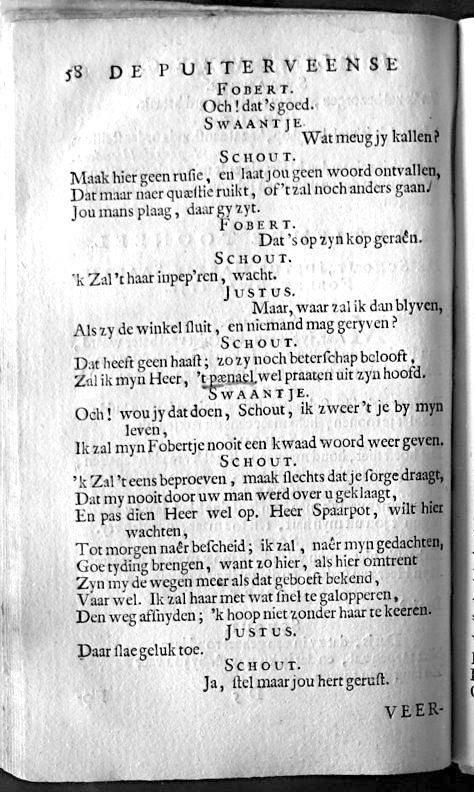 58 DE PUITERVEENSE
FOBERT.
Och! dat's goed.
SWAANTJE.
Wat meug jy kallen?
SCHOUT.
Maak hier geen rusie, en laat jou geen woord ontvallen,
Dat maar naer quæstie ruikt, of 't zal noch anders gaan.
Jou mans plaag, daar gy zyt.
FOBERT.
Dat's op zyn kop geraên.
SCHOUT.
'k Zal 't haar inpep'ren, wacht.
JUSTUS.
Maar, waar zal ik dan blyven,
Als zy de winkel sluit, en niemand mag geryven?
SCHOUT.
Dat heeft geen haast; zo zy noch beterschap belooft,
Zal ik myn Heer, 't pænael wel praaten uit zyn hoofd.
SWAANTJE.
Och! wou jy dat doen, Schout, ik zweer 't je by myn
leven,
Ik zal myn Fobertje nooit een kwaad woord weer geven.
SCHOUT.
'k Zal 't eens beproeven, maak slechts dat je sorge draagt,
Dat my nooit door uw man werd over u geklaagt,
En pas dien Heer wel op. Heer Spaarpot, wilt hier
wachten,
Tot morgen naêr bescheid; ik zal, naêr myn gedachten,
Goe tyding brengen, want zo hier, als hier omtrent
Zyn my de wegen meer als dat geboeft bekend,
Vaar wel. Ik zal haar met wat snel te galopperen,
Den weg afsnyden; 'k hoop niet zonder haar te keeren.
JUSTUS.
Daar slae geluk toe.
SCHOUT.
Ja, stel maar jou hert gerust.
VEER-